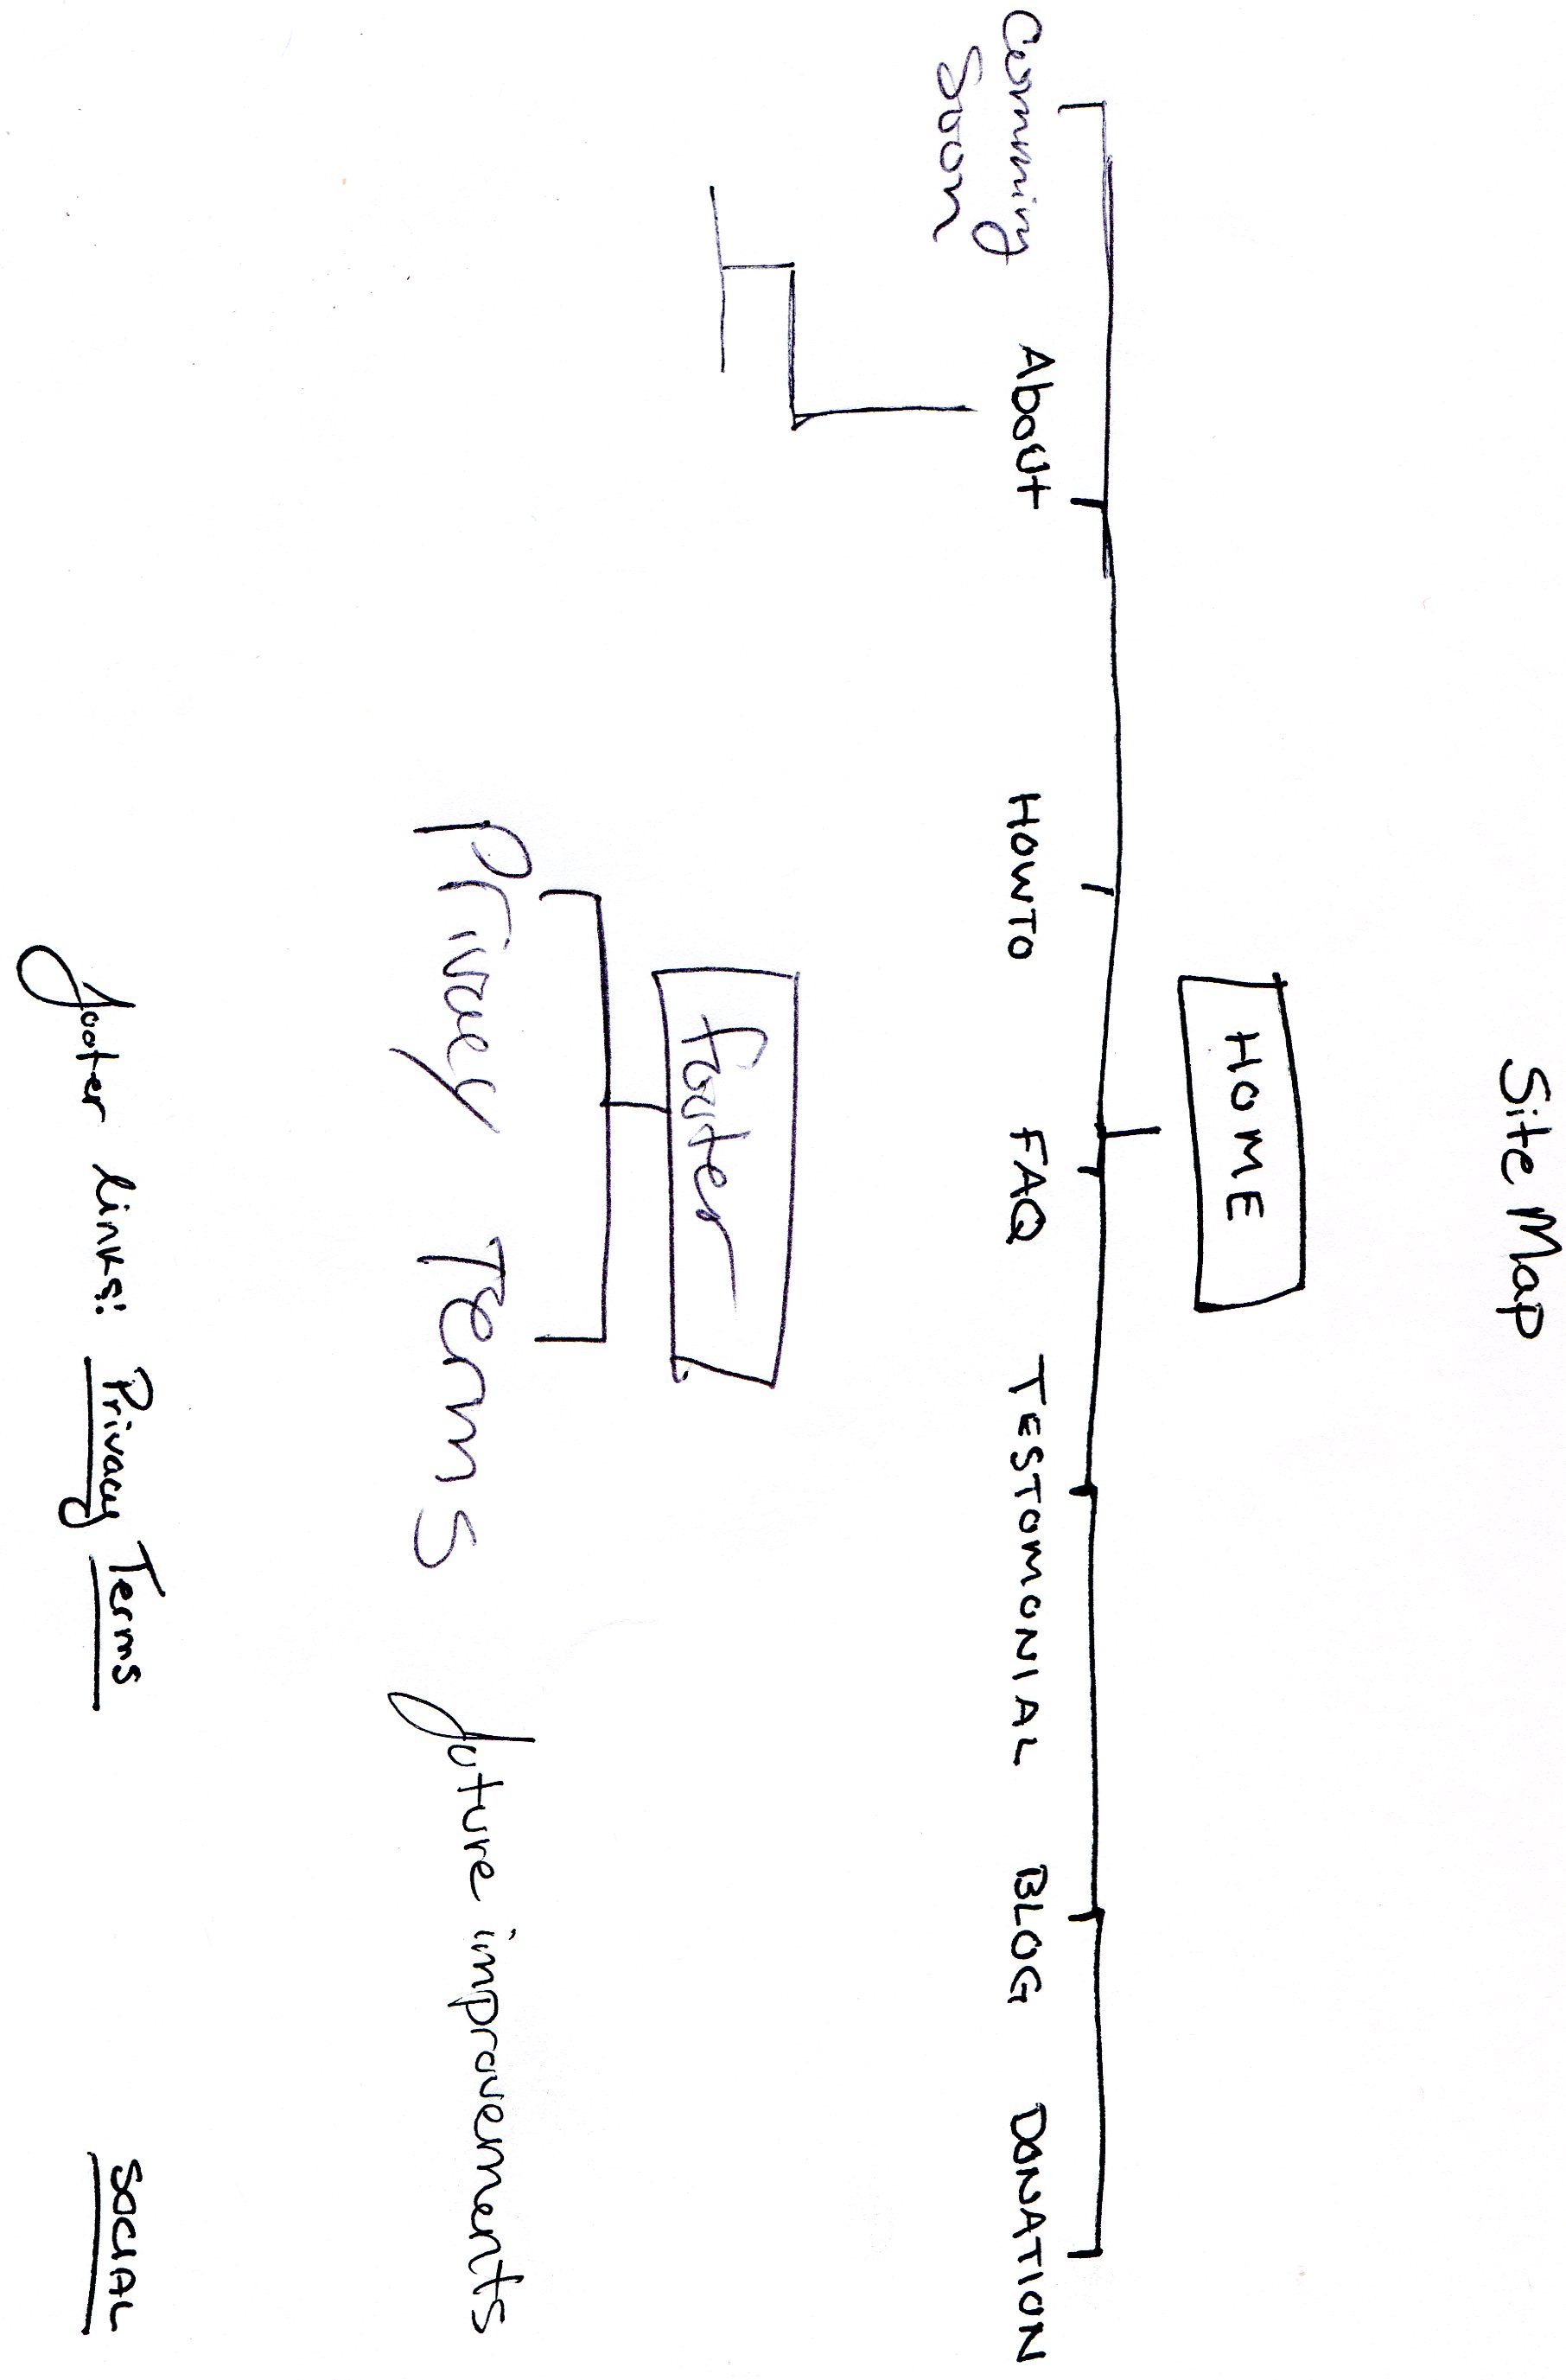 Site Map
HOME
Comming About HOWTO FAQ TESTOMONIAL BLOG DONATION
Soon
footer
Privacy Terms future improvements
footer links: Privacy Terms SOCIAL